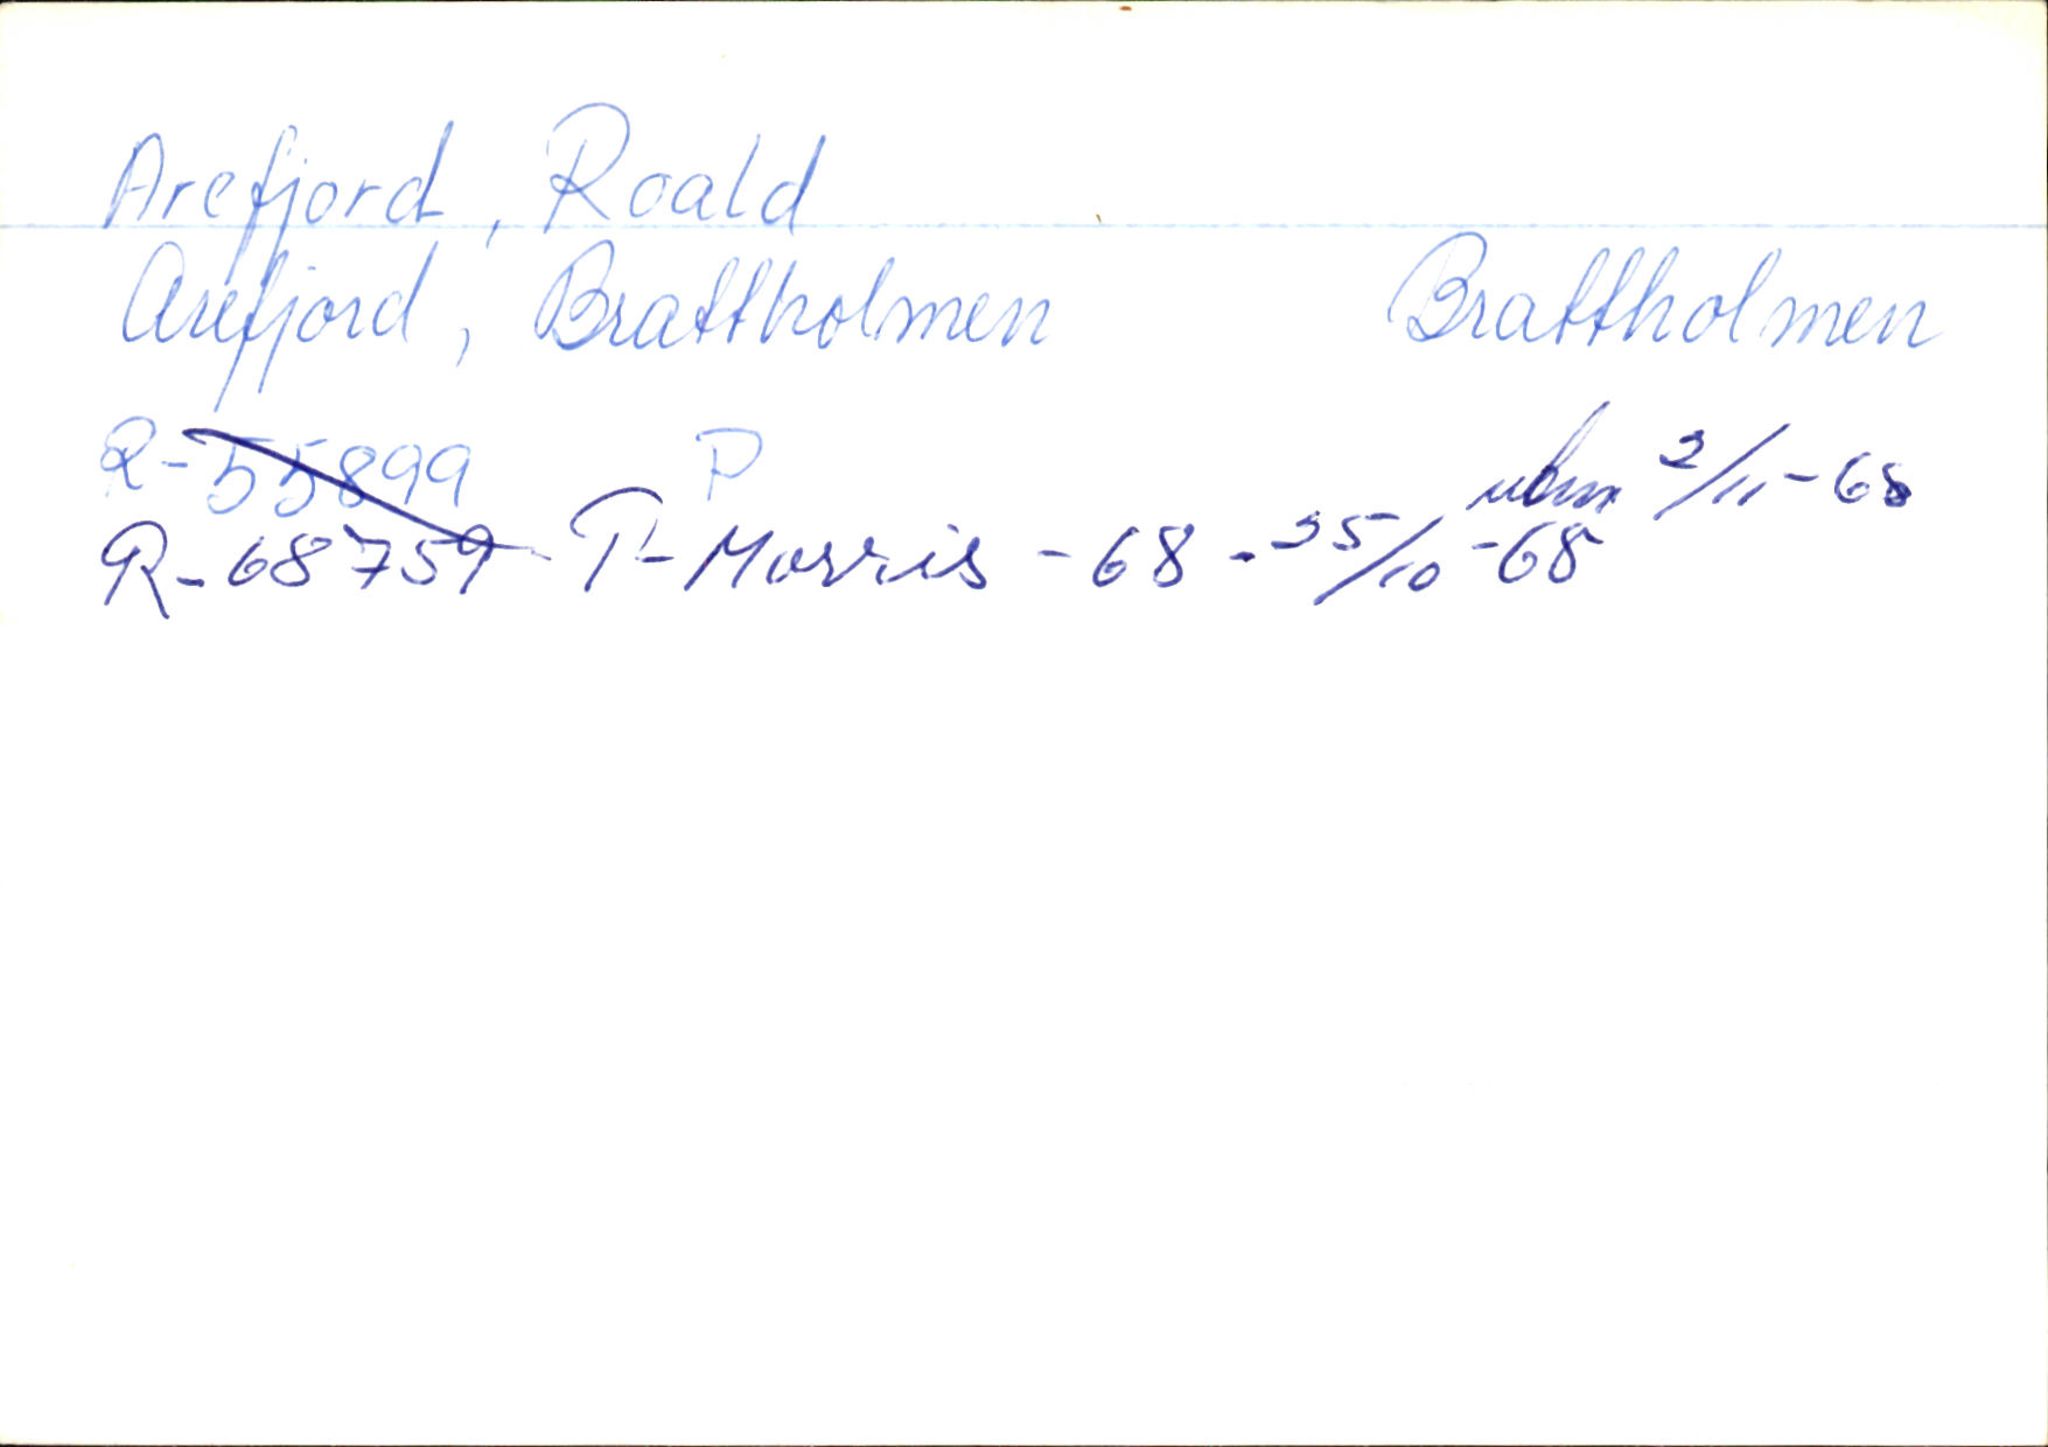 Arefjord, Roald
Arefjord, Brattholmen Brattholmen
R-55899 P 2/11-68
R-68759 P-Morris-68-25/10-68